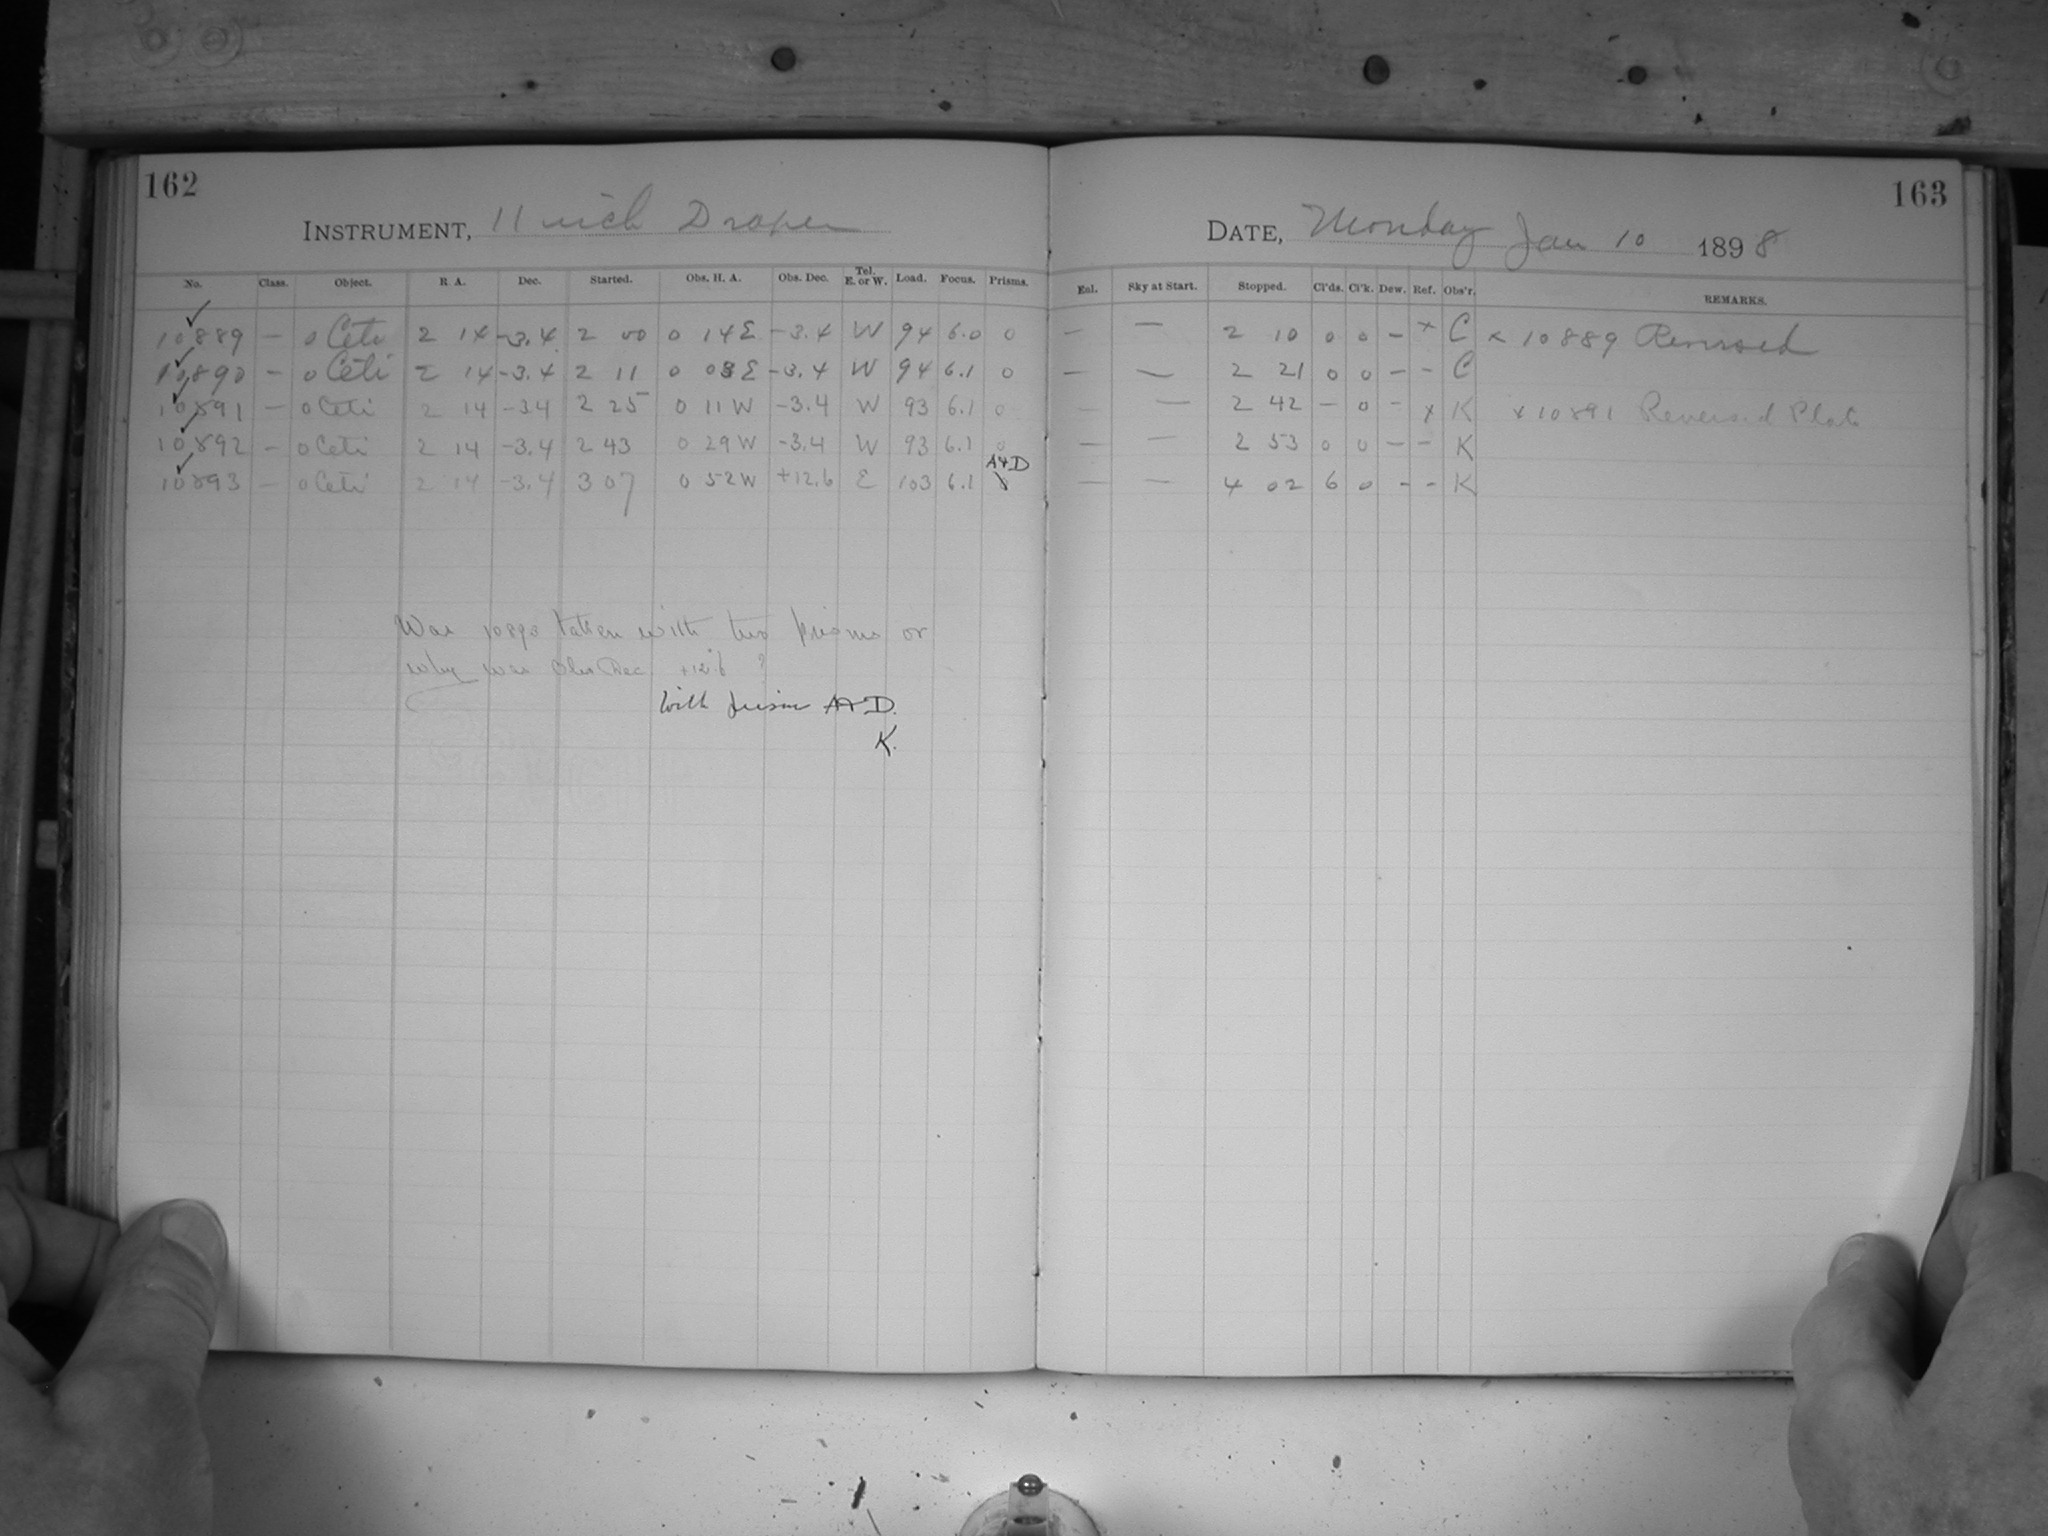 162
INSTRUMENT, 11 inch Draper
No. Class. Object. R A. Dec. Started. Obs. H. A. Obs. Dec. Tel. E. or W. Load. Focus. Prisms.
10889 — o Ceti 2 14 -3.4 2 00 0 14 E -3.4 W 94 6.0 0
10890 — o Ceti 2 14 -3.4 2 11 0 03 E -3.4 W 94 6.1 0
10891 — o Ceti 2 14 -34 2 25 0 11 W -3.4 W 93 6.1 0
10892 — o Ceti 2 14 -3.4 2 43 0 29 W -3.4 W 93 6.1 0
A+D
10893 — o Ceti 2 14 -3.4 3 07 0 52 W +12.6 E 103 6.1
Was 10893 taken with two prisms or
why was Obs Dec +12.6 ?
With prism A+D.
K.
163
DATE, Monday Jan 10 1898
Enl. Sky at Start. Stopped. Cl'ds. Cl'k. Dew. Ref. Obs'r. REMARKS.
— — 2 10 0 0 — x C x 10889 Reversed
— — 2 21 0 0 — — C
— — 2 42 — 0 — x K x 10891 Reversed Plate
— — 2 53 0 0 — — K
— — 4 02 6 0 — — K